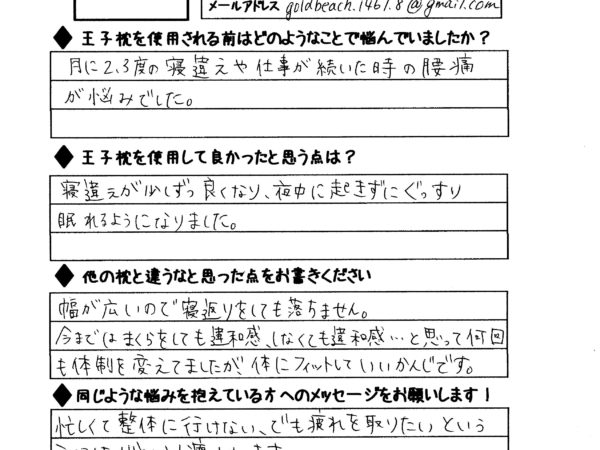 メールアドレス goldbeach.1461.8@gmail.com
◆王子枕を使用される前はどのようなことで悩んでいましたか?
月に2、3度の寝違えや仕事が続いた時の腰痛
が悩みでした。
◆王子枕を使用して良かったと思う点は?
寝違えが少しずつ良くなり、夜中に起きずにぐっすり
眠れるようになりました。
◆他の枕と違うなと思った点をお書きください
幅が広いので寝返りをしても落ちません。
今まではまくらをしても違和感、しなくても違和感…と思って何回
も体制を変えてましたが、体にフィットしていいかんじです。
◆同じような悩みを抱えている方へのメッセージをお願いします!
忙しくて整体に行けない、でも疲れを取りたいという